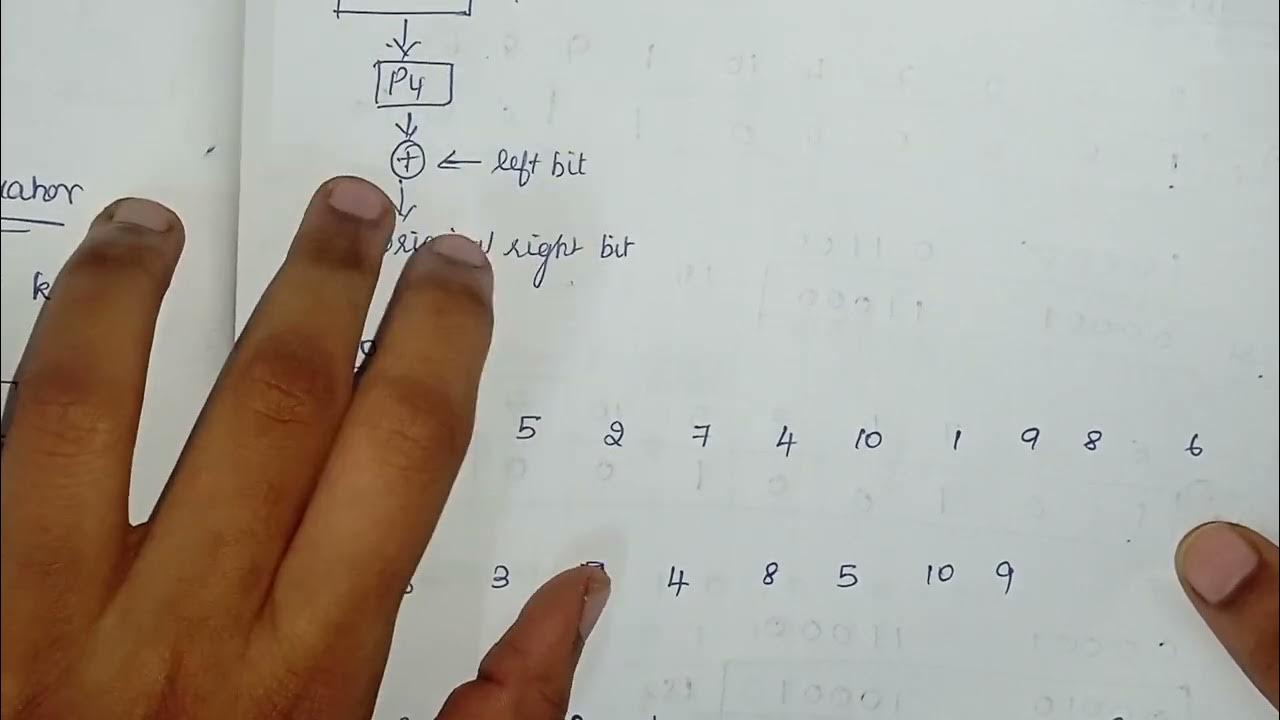 P4
+ ← left bit
right bit
k
5 2 7 4 10 1 9 8 6
3 7 4 8 5 10 9